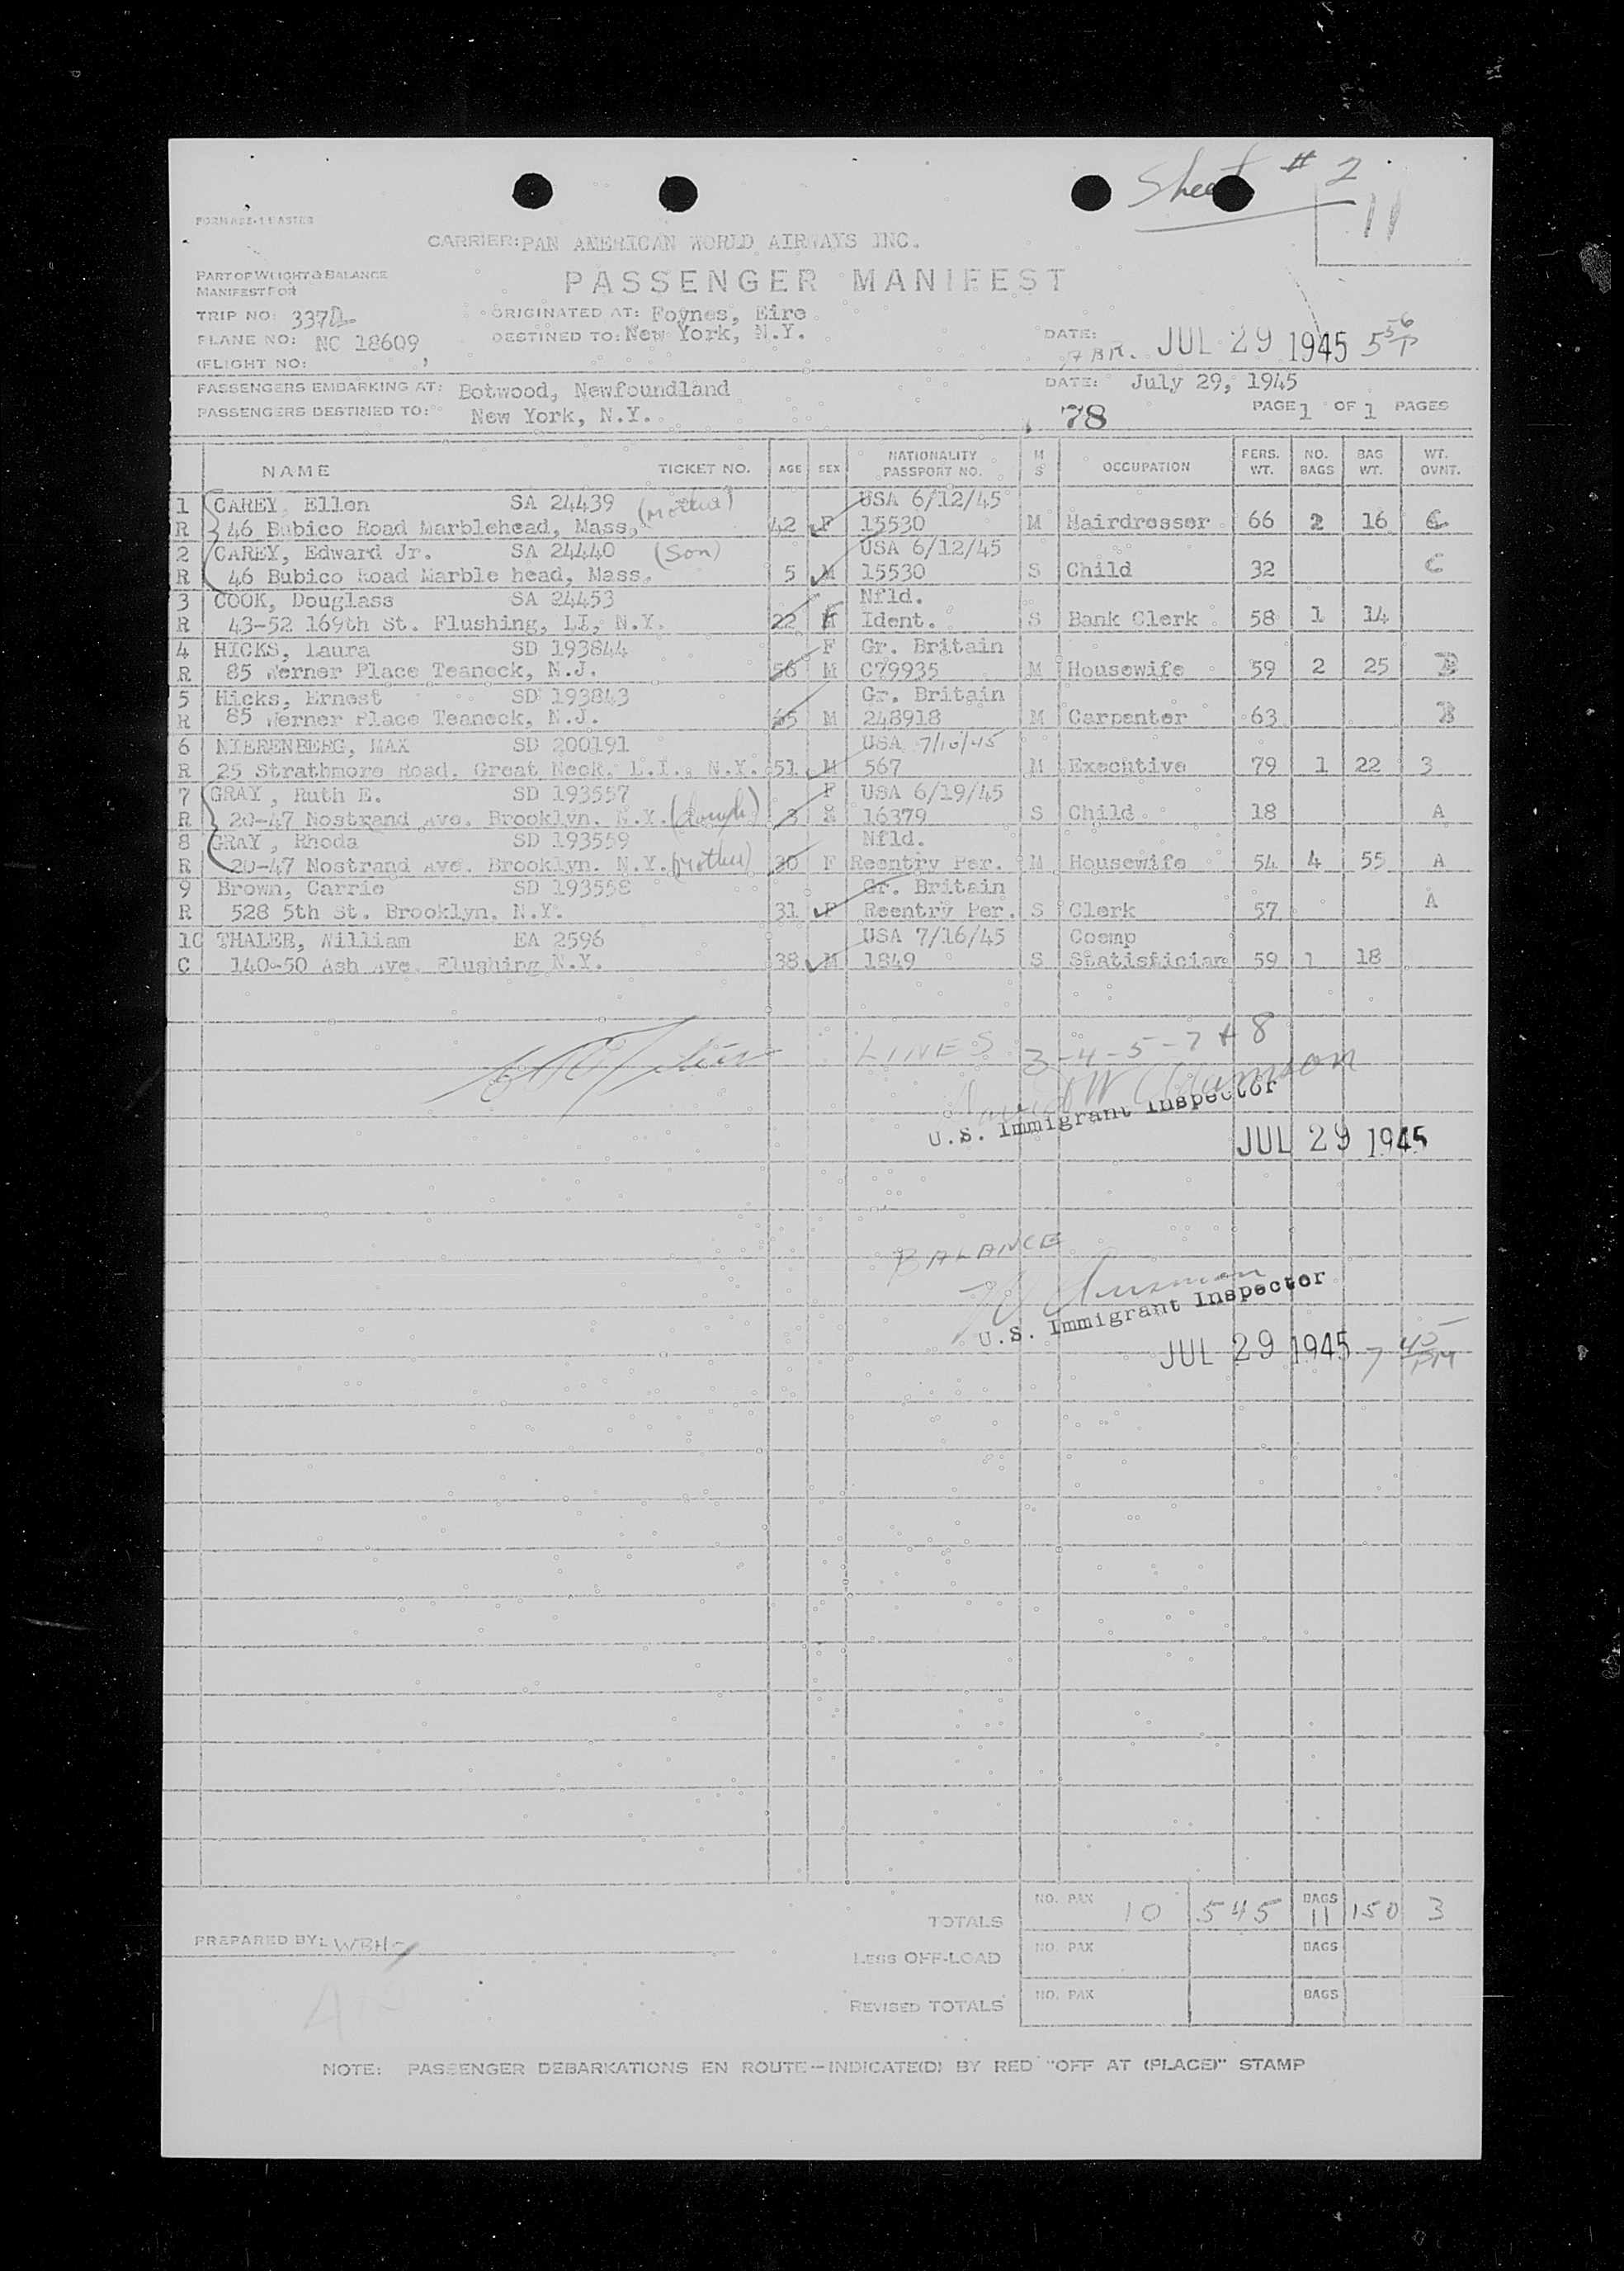 Sheet # 2
11
CARRIER: PAN AMERICAN WORLD AIRWAYS INC.
PART OF WEIGHT & BALANCE
MANIFEST FOR
PASSENGER MANIFEST
TRIP NO: 337
ORIGINATED AT: Foynes, Eire
PLANE NO: NC 18609
DESTINED TO: New York, N.Y.
DATE: JUL 29 1945 5 56 P
(FLIGHT NO:
PASSENGERS EMBARKING AT: Botwood, Newfoundland
DATE: July 29, 1945
PASSENGERS DESTINED TO: New York, N.Y.
78
PAGE 1 OF 1 PAGES
NAME TICKET NO. AGE SEX NATIONALITY PASSPORT NO. M S OCCUPATION PERS. WT. NO. BAGS BAG WT. WT. OVNT.
1 CAREY, Ellen SA 24439 (Mother) USA 6/12/45
R 46 Bubico Road Marblehead, Mass. 42 F 15530 M Hairdresser 66 2 16 C
2 CAREY, Edward Jr. SA 24440 (Son) USA 6/12/45
R 46 Bubico Road Marble head, Mass. 5 M 15530 S Child 32 C
3 COOK, Douglass SA 24453 Nfld.
R 43-52 169th St. Flushing, LI, N.Y. 22 M Ident. S Bank Clerk 58 1 14
4 HICKS, Laura SD 193844 F Gr. Britain
R 85 Werner Place Teaneck, N.J. 56 M C79935 M Housewife 59 2 25 B
5 Hicks, Ernest SD 193843 Gr. Britain
R 85 Werner Place Teaneck, N.J. 65 M 248918 M Carpenter 63 B
6 NIERENBERG, MAX SD 200191 USA 7/10/45
R 25 Strathmore Road. Great Neck. L.I., N.Y. 51 M 567 M Executive 79 1 22 3
7 GRAY, Ruth E. SD 193557 F USA 6/19/45
R 20-47 Nostrand Ave. Brooklyn. N.Y. (daugh) 3 M 16379 S Child 18 A
8 GRAY, Rhoda SD 193559 Nfld.
R 20-47 Nostrand Ave. Brooklyn. N.Y. (Mother) 30 F Reentry Per. M Housewife 54 4 55 A
9 Brown, Carrie SD 193558 Gr. Britain
R 528 5th St. Brooklyn. N.Y. 31 F Reentry Per. S Clerk 57 A
10 THALER, William EA 2596 USA 7/16/45 Coemp
C 140-50 Ash Ave. Flushing N.Y. 38 M 1849 S Statistician 59 1 18
LINES 3-4-5-7 + 8
U.S. Immigrant Inspector
JUL 29 1945
BALANCE
U.S. Immigrant Inspector
JUL 29 1945 7 45 PM
TOTALS NO. PAX 10 545 BAGS 11 150 3
PREPARED BY: WBH
LESS OFF-LOAD NO. PAX BAGS
REVISED TOTALS NO. PAX BAGS
NOTE: PASSENGER DEBARKATIONS EN ROUTE—INDICATE(D) BY RED "OFF AT (PLACE)" STAMP